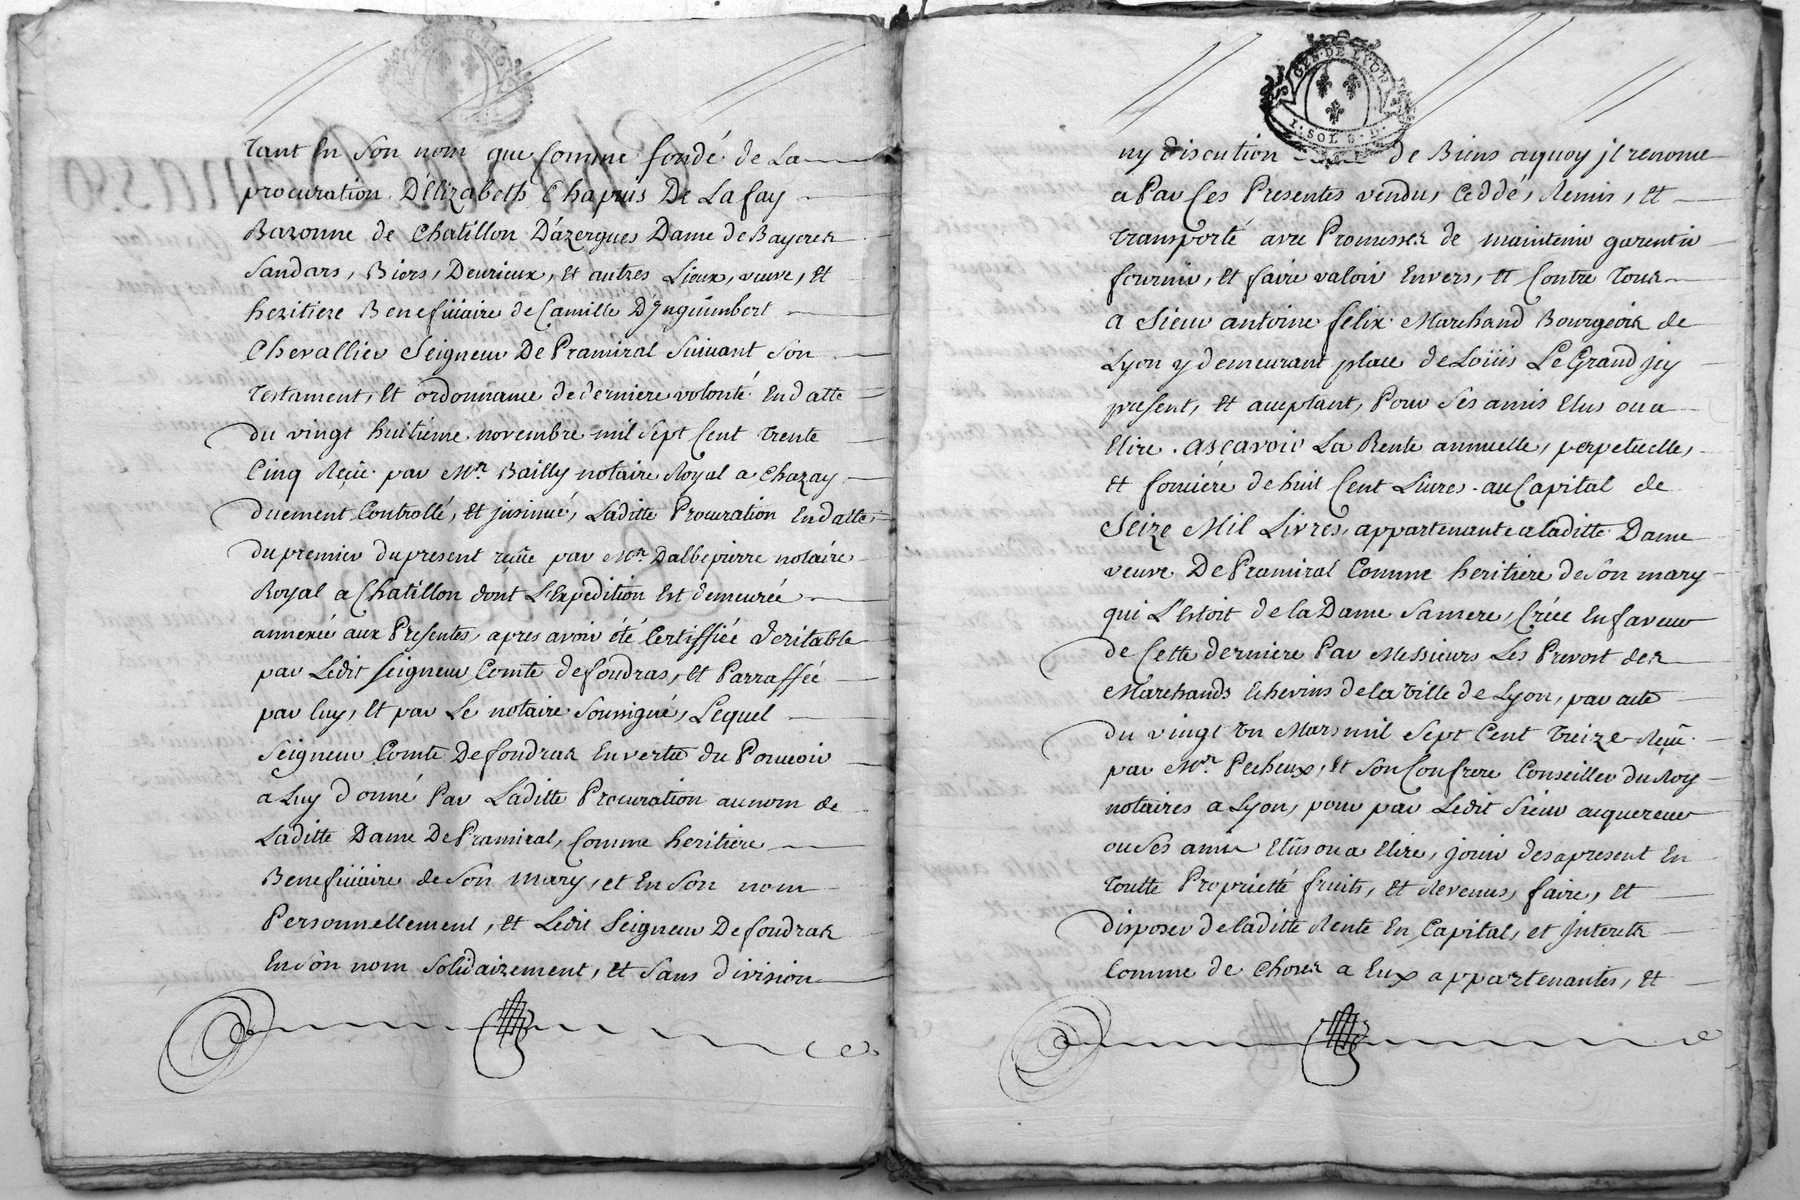 Tant En Son nom que Comme fondé de La
procuration D'Elizabeth Chapuis De Lafay
Baronne de Chatillon D'azergues Dame de Bayeres
Sandars, Biers, Deurieux, Et autres Lieux, veuve, Et
heritiere Beneficiaire de Camille D'Inguimbert
Chevallier Seigneur De Pramiral Suivant Son
Testament, Et ordonnance de derniere volonté En datte
du vingt huitiéme novembre mil Sept Cent Trente
Cinq Reçue par Mr. Bailly notaire Royal a Chazay
duement Controllé, Et jnsinué, Laditte Procuration En datte
du premier du present reçüe par Mr. Dalbepierre notaire
Royal a Chatillon dont L'Expedition Est demeurée
annexée aux Presentes, apres avoir été Certiffiée Veritable
par Ledit Seigneur Comte defoudras, Et Parraffée
par luy, Et par Le notaire Soussigné, Lequel
Seigneur Comte Defoudras En vertu du Pouvoir
a Luy donné Par Laditte Procuration au nom de
Laditte Dame De Pramiral, Comme heritiere
Beneficiaire de Son Mary, et En Son nom
Personnellement, Et Ledit Seigneur De foudras
En Son nom Solidairement, Et Sans division
GEN. DE LYON
1. SOL 8. D.
ny discution de Biens aquoy jl renonce
a Par Ces Presentes vendu, Ceddé, Remis, Et
Transporté avec Promesses de maintenir garentir
fournir, Et faire valoir Envers, Et Contre Tous
a Sieur antoine felix Marchand Bourgeois de
Lyon y demeurant place de Loüis Le Grand jcy
present, Et acceptant, Pour Ses amis Elus ou a
Elire. ascavoir La Rente annuelle, perpetuelle,
Et fonciere de huit Cent Livres. au Capital de
Seize Mil Livres, appartenante a laditte Dame
veuve De Pramiral Comme heritiere de Son mary
qui L'Estoit de la Dame Sa mere, Créée En faveur
de Cette derniere Par Messieurs Les Prevost des
Marchands Echevins de la ville de Lyon, par acte
du vingt un Mars mil Sept Cent Treize Reçüe
par Mr. Pecheux, Et Son Confrere Conseiller du Roy
notaires a Lyon, pour par Ledit Sieur acquereur
ou Ses amis Elüs ou a Elire, jouir des apresent En
Toutte Proprietté fruits, Et Revenus, faire, Et
disposer de laditte Rente En Capital, et jnterets
Comme de Choses a Eux appartenantes, Et